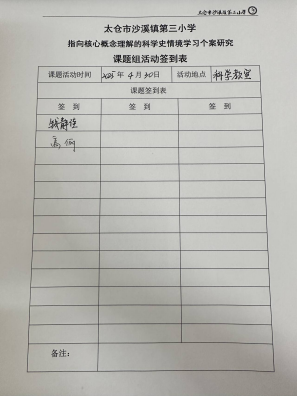 太仓市沙溪镇第三小学
太仓市沙溪镇第三小学
指向核心概念理解的科学史情境学习个案研究
课题组活动签到表
课题活动时间 2025年4月30日 活动地点 科学教室
课题签到表
签 到 签 到 签 到
钱静佳
高
备注：